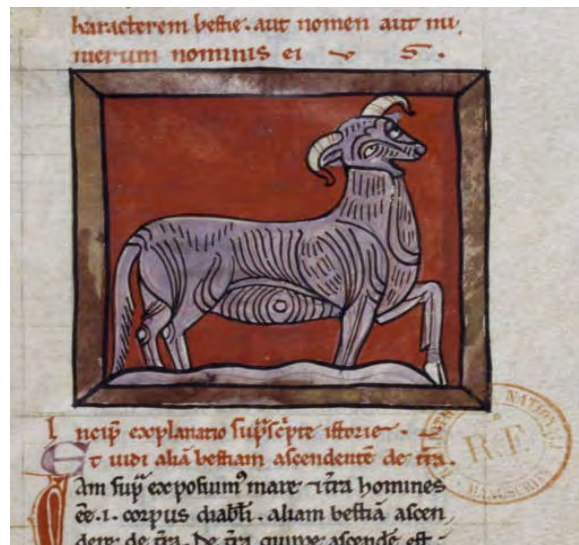 karacterem bestie. aut nomen aut nu,
merum nominis ei
Incip̄ explanatio sup̄sc̄pte istorie.
Et uidi aliā bestiam ascendentē de t̄ra.
Iam sup̄ exposuim⁹ mare ⁊ t̄ra homines
eē .i. corpus diabl̄i. aliam bestiā ascen,
dere de t̄ra. De t̄ra quippe ascendē est
R.F.
MANUSCRITS